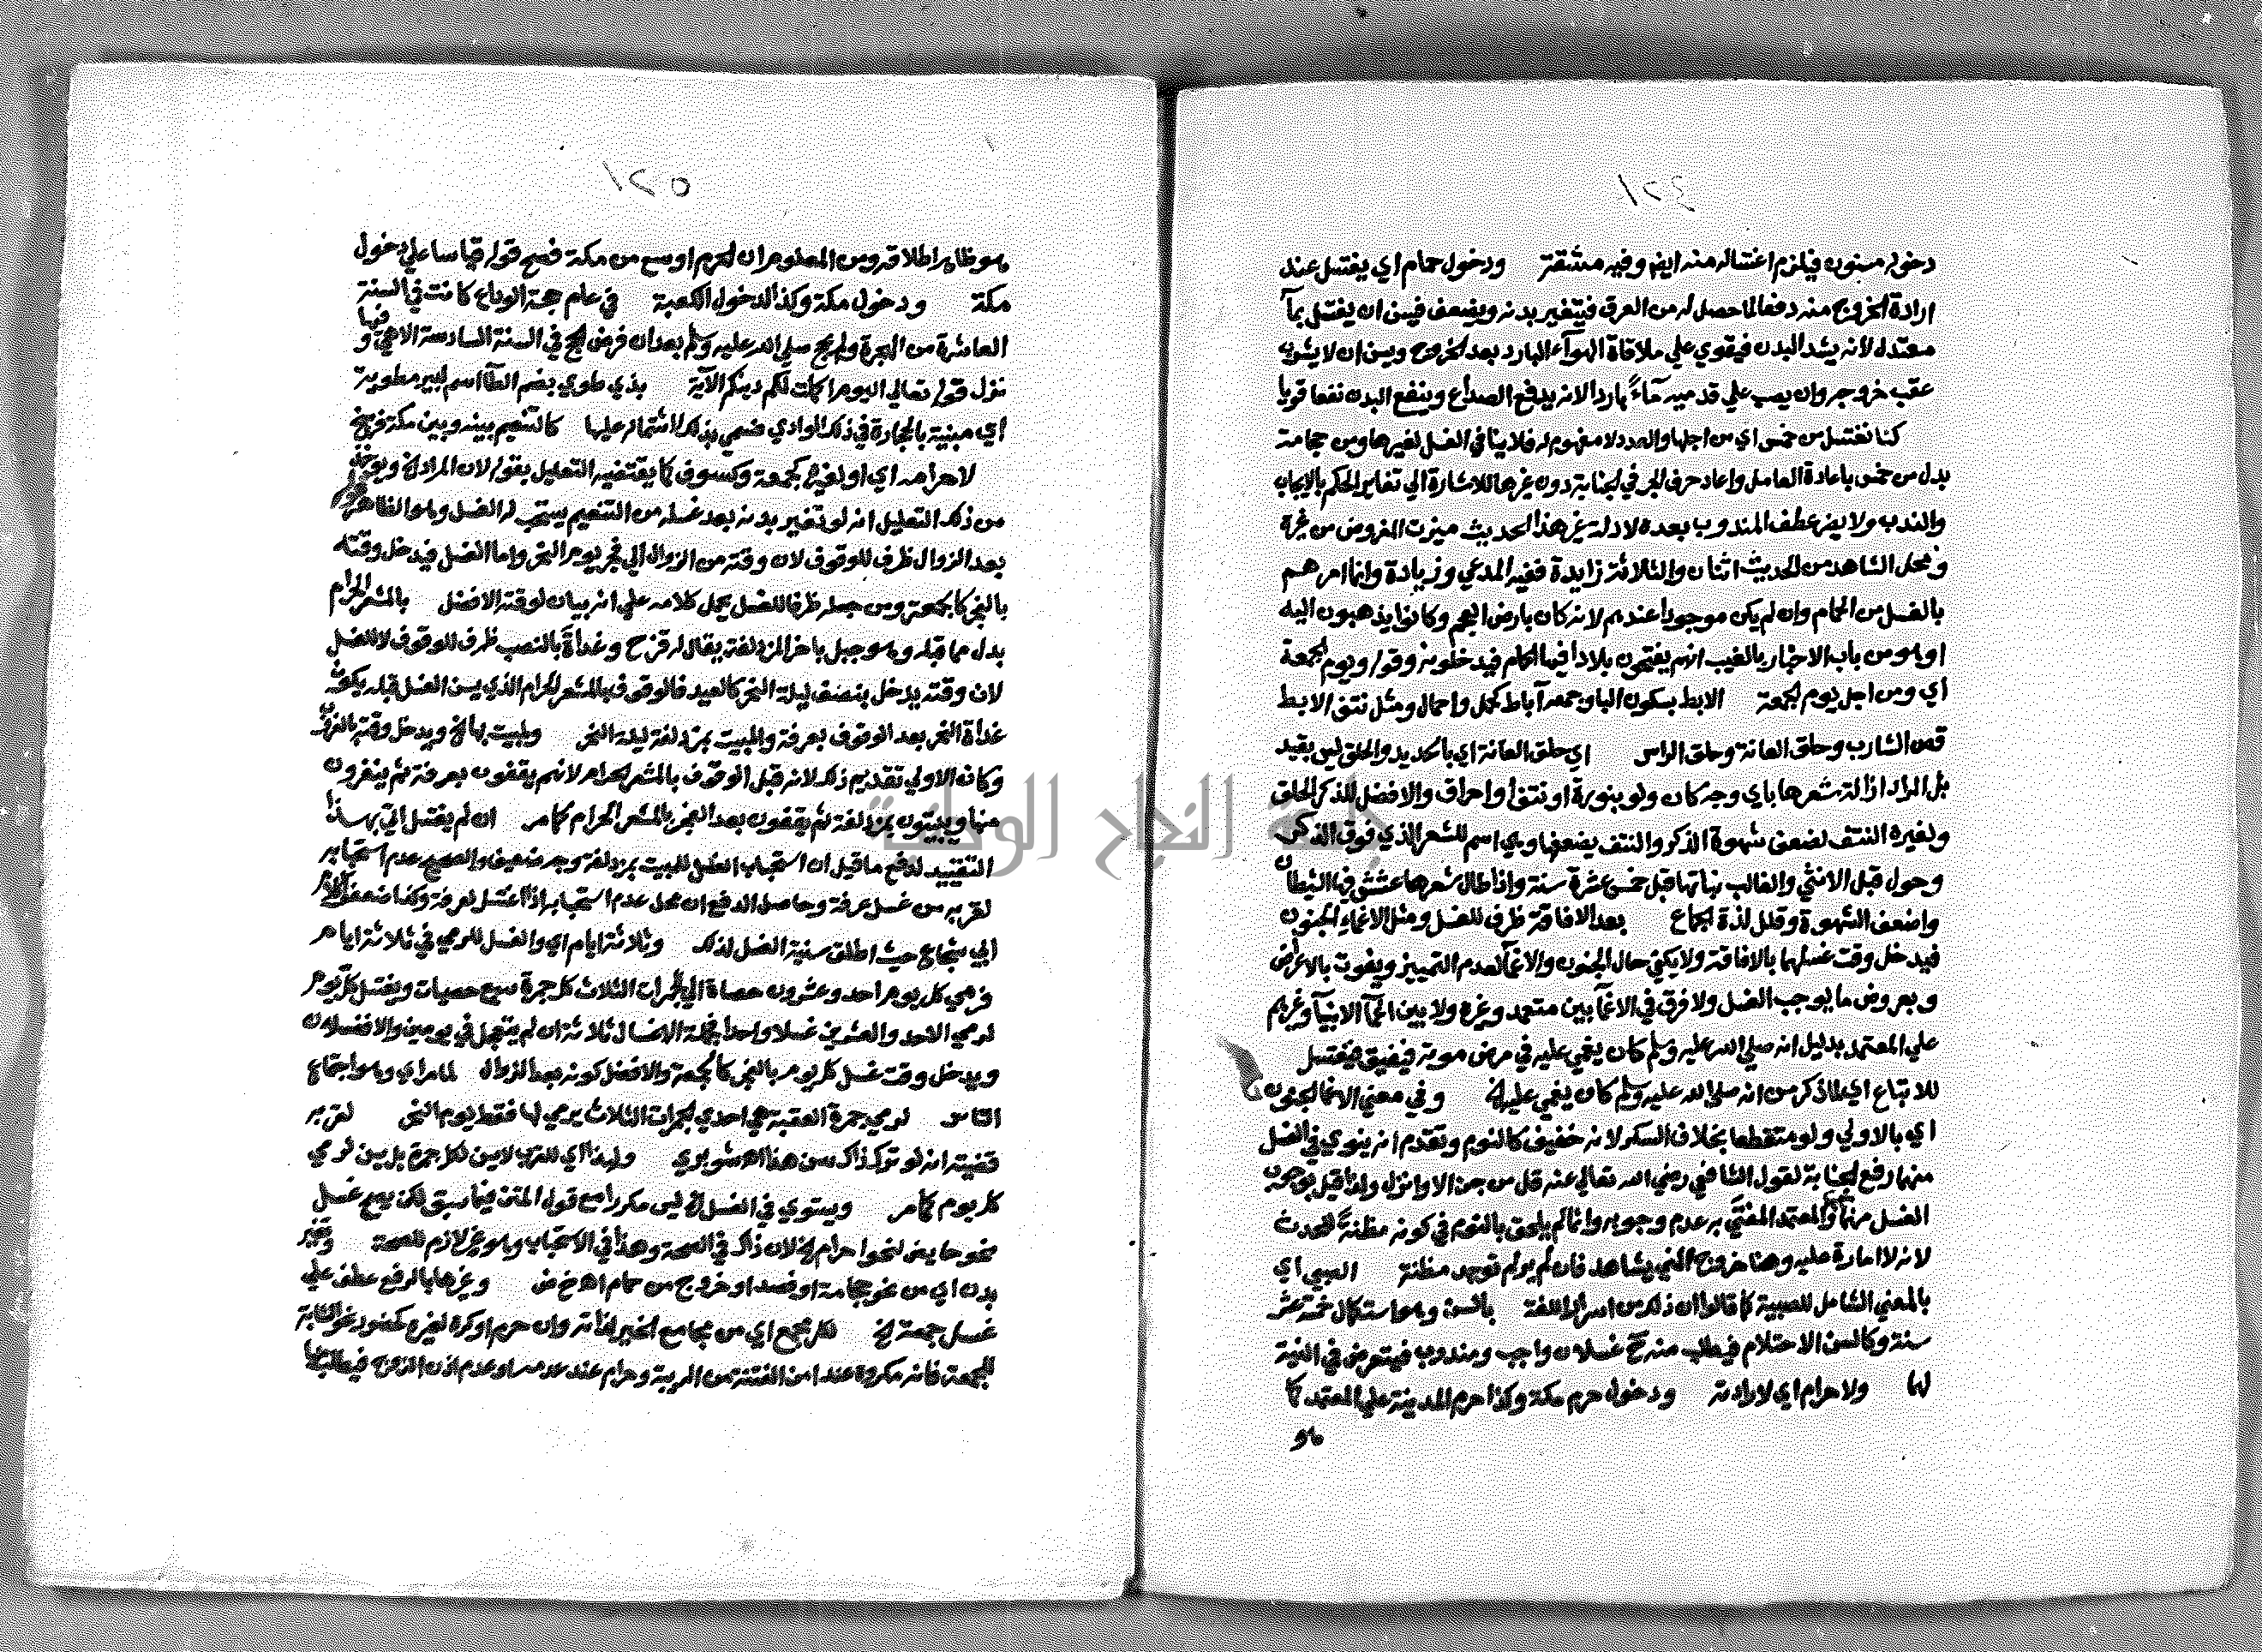 ١٢٤
دخوله مسنون فيلزم اغتساله منه ايض وفيه مشقة ودخول حمام اي يغتسل عند
ارادة الخروج منه دفعا لما حصل له من العرق فيتغير بدنه ويضعف فيسن ان يغتسل بمآ
معتدل لانه يشد البدن فيقوي علي ملاقاة الهوآء البارد بعد الخروج ويسن ان لا يشرب
عقب خروجه وان يصب علي قدميه مآءً باردا لانه يدفع الصداع وينفع البدن نفعا قويا
كنا نغتسل من خمس اي من اجلها والعدد لا مفهوم له فلا ينافي الغسل لغيرها ومن حجامة
بدل من خمس باعادة العامل واعاد حرف الجر في الجنابة دون غيرها للاشارة الي تغاير الحكم بالايجاب
والندب ولا يضر عطف المندوب بعده لادلة غير هذا الحديث ميزت المفروض من غيره
ومحل الشاهد من الحديث اثنان والثلاثة زايدة ففيه المدعي وزيادة وانما امرهم
بالغسل من الحمام وان لم يكن موجودا عندهم لانه كان بارض العجم وكانوا يذهبون اليه
او هو من باب الاخبار بالغيب انهم يفتحون بلادا فيها الحمام فيدخلونه وقوله ويوم الجمعة
اي ومن اجل يوم الجمعة الابط بسكون البا وجمعه آباط كحمل واحمال ومثل نتف الابط
قص الشارب وحلق العانة وحلق الراس اي حلق العانة اي بالحديد والحلق ليس بقيد
بل المراد ازالة شعرها باي وجه كان ولو بنورة او نتف او احراق والافضل للذكر الحلق
ولغيره النتف لضعف شهوة الذكر والنتف يضعفها وهي اسم للشعر الذي فوق الذكر
وحول قبل الانثي والغالب نباتها قبل خمس عشرة سنة واذا طال شعرها عشش فيها الشيطان
واضعف الشهوة وقلل لذة الجماع بعد الافاقة ظرف للغسل ومثل الاغماء الجنون
فيدخل وقت غسلهما بالافاقة ولا يكفي حال الجنون والاغمآ لعدم التمييز ويفوت بالاعراض
وبعروض ما يوجب الغسل ولا فرق في الاغمآ بين متعمد وغيره ولا بين الانبيآ وغيرهم
علي المعتمد بدليل انه صلي الله عليه وسلم كان يغمي عليه في مرض موته فيفيق فيغتسل
للاتباع اي لما ذكر من انه صلي الله عليه وسلم كان يغمي عليه الخ وفي معني الاغما الجنون
اي بالاولي ولو متقطعا بخلاف السكر لانه خفيف كالنوم وتقدم انه ينوي في الغسل
منهما رفع الجنابة لقول الشافعي رضي الله تعالي عنه قل من جن الا وانزل ولذا قيل بوجوب
الغسل منهما والمعتمد المفتي به عدم وجوبه وانما لم يلحق بالنوم في كونه مظنةً للحدث
لانه لا امارة عليه وهنا خروج المني يشاهد فان لم ير لم توجد مظنة الصبي اي
بالمعني الشامل للصبية كما قالوا ان ذلك من اسرار اللغة بالسن وهو استكمال خمسة عشر
سنة وكالسن الاحتلام فيطلب منه ح غسلان واجب ومندوب فيتعرض في النية
لهما ولاحرام اي لارادته ودخول حرم مكة وكذا حرم المدينة علي المعتمد كما
هو
١٢٥
هو ظاهر اطلاقه ومن المعلوم ان الحرم اوسع من مكة فصح قوله قياسا علي دخول
مكة ودخول مكة وكذا لدخول الكعبة في عام حجة الوداع كانت في السنة
العاشرة من الهجرة ولم يحج صلي الله عليه وسلم بعد ان فرض الحج في السنة السادسة الا هي وفيها
نزل قوله تعالي اليوم اكملت لكم دينكم الآية بذي طوي بضم الطآ اسم لبير مطوية
اي مبنية بالحجارة في ذلك الوادي فسمي بذلك لاشتماله عليها كالتنعيم بينه وبين مكة فرسخ
لاحرامه اي او لغيره كجمعة وكسوف كما يقتضيه التعليل بقوله لان المراد الخ ويوخذ
من ذلك التعليل انه لو تغير بدنه بعد غسله من التنعيم يستحب له الغسل وهو الظاهر
بعد الزوال ظرف للوقوف لان وقته من الزوال الي فجر يوم النحر واما الغسل فيدخل وقته
بالفجر كالجمعة ومن جعله ظرفا للغسل يحمل كلامه علي انه بيان لوقته الافضل بالمشعر الحرام
بدل مما قبله وهو جبل باخر المزدلفة يقال له قزح وغداةَ بالنصب ظرف للوقوف لا للغسل
لان وقته يدخل بنصف ليلة النحر كالعيد فالوقوف بالمشعر الحرام الذي يسن الغسل قبله يكون
غداة النحر بعد الوقوف بعرفة والمبيت بمزدلفة ليلة النحر ولمبيت بها الخ ويدخل وقته بالغروب
وكان الاولي تقديم ذلك لانه قبل الوقوف بالمشعر الحرام لانهم يقفون بعرفة ثم ينفرون
منها ويبيتون بمزدلفة ثم يقفون بعد الفجر بالمشعر الحرام كما مر ان لم يغتسل اتي بهذا
التقييد لدفع ما قيل ان استحباب الغسل للمبيت بمزدلفة وجه ضعيف والصحيح عدم استحبابه
لقربه من غسل عرفة وحاصل الدفع ان محل عدم استحبابه اذا اغتسل لعرفة وكذا ضعف
حيث اطلق سنية الغسل لذلك وثلاثة ايام اي والغسل للرمي في ثلاثة ايام
فرمي كل يوم احد وعشرون حصاة الي الجمرات الثلاث كل جمرة سبع حصيات ويغتسل كل يوم
لرمي الاحد والعشرين غسلا واحدا فجملة الاغسال ثلاثة ان لم يتعجل في يومين والا فغسلان
ويدخل وقت غسل كل يوم بالفجر كالجمعة والافضل كونه بعد الزوال لما مر اي وهو اجتماع
الناس لرمي جمرة العقبة هي احدي الجمرات الثلاث يرمي لها فقط يوم النحر لقربه
قضيته انه لو ترك ذاك سن هذا اه شوبري ولهذا اي للقرب لا يسن لكل جمرة بل يسن لرمي
كل يوم كما مر ويستوي في الغسل الخ ليس مكررا مع قول المتن فيما سبق لكن يصح غسل
نحو حايض لنحو احرام الخ لان ذاك في الصحة وهذا في الاستحباب وهو غير لازم للصحة وتغير
بدن اي من نحو حجامة او فصد او خروج من حمام اه خ ض وغيرها بالرفع عطف علي
غسل جمعة الخ لكل مجمع اي من مجامع الخير وان حرم او كره لغيره كحضور نحو الشابة
للجمعة فانه مكروه عند امن الفتنة من الريبة وحرام عند عدمه او عدم اذن الزوج فيطلب لها